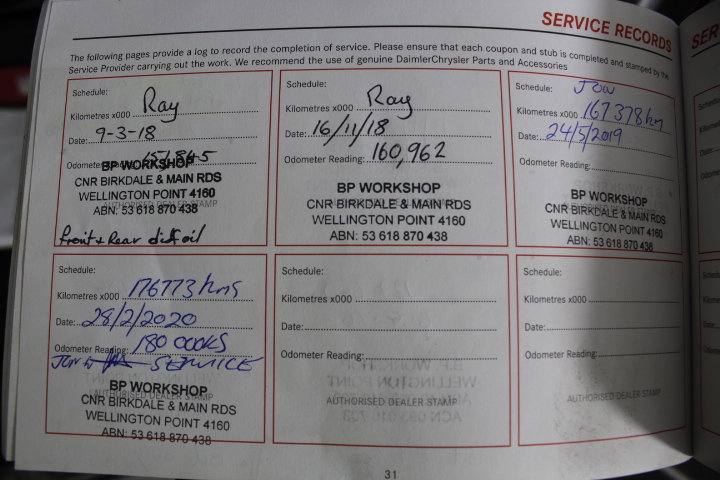 SERVICE RECORDS
The following pages provide a log to record the completion of service. Please ensure that each coupon and stub is completed and stamped by the
Service Provider carrying out the work. We recommend the use of genuine DaimlerChrysler Parts and Accessories
Schedule:
Ray
Kilometres x000
Date: 9-3-18
Odometer
BP WORKSHOP
CNR BIRKDALE & MAIN RDS
WELLINGTON POINT 4160
AUTHORISED DEALER STAMP
ABN: 53 618 870 438
Front + Rear diff oil
Schedule:
Kilometres x000 Ray
Date: 16/11/18
Odometer Reading: 160,962
BP WORKSHOP
CNR BIRKDALE & MAIN RDS
WELLINGTON POINT 4160
ABN: 53 618 870 438
Schedule: JON
Kilometres x000 167378 km
Date: 24/5/2019
Odometer Reading:
BP WORKSHOP
CNR BIRKDALE & MAIN RDS
WELLINGTON POINT 4160
ABN: 53 618 870 438
Schedule:
Kilometres x000 176773 kms
Date: 28/2/2020
Odometer Reading: 180 000KS
SERVICE
BP WORKSHOP
AUTHORISED DEALER STAMP
CNR BIRKDALE & MAIN RDS
WELLINGTON POINT 4160
ABN: 53 618 870 438
Schedule:
Kilometres x000
Date:
Odometer Reading:
AUTHORISED DEALER STAMP
Schedule:
Kilometres x000
Date:
Odometer Reading:
AUTHORISED DEALER STAMP
31